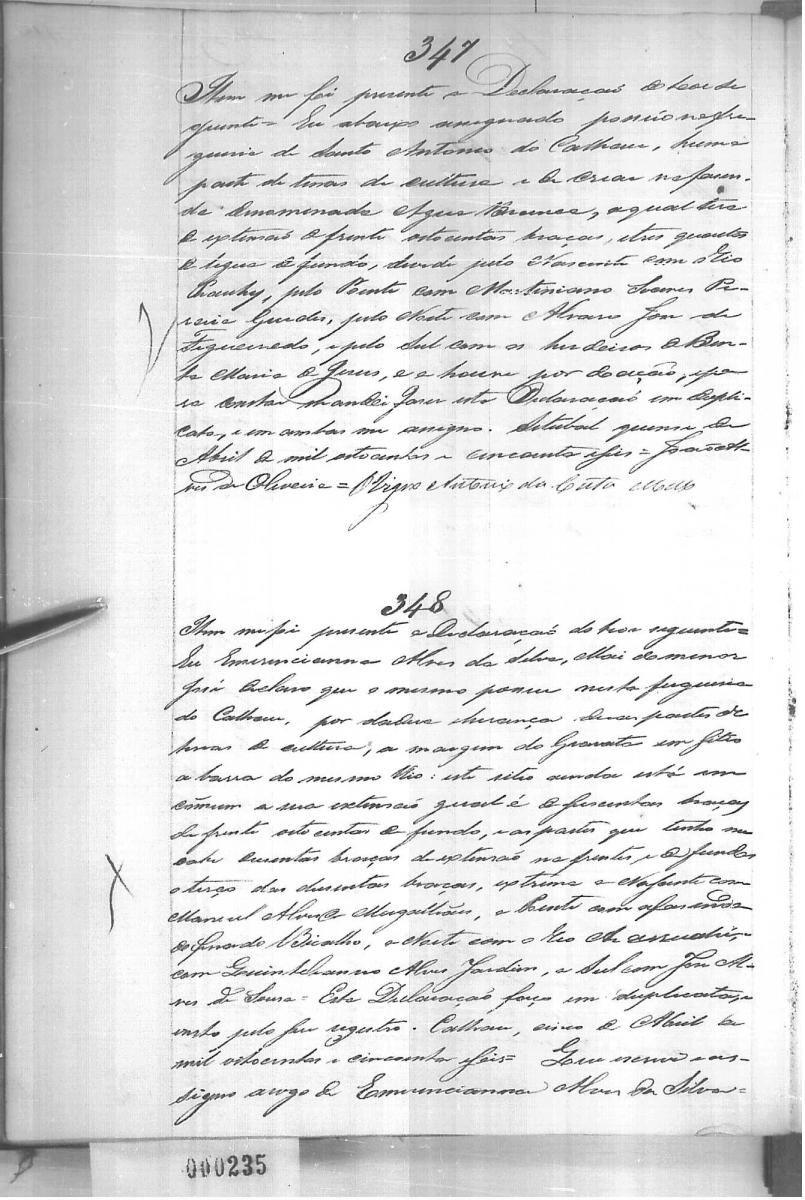 347
Item me foi presente a Declaraçaõ do teor se
guinte = Eu abaixo assignado possúo na fre-
guesia de Santo Antonio do Calhau, huma
parte de terras de cultura e de criar na fasen-
da denominada Agua Branca, a qual terá
de extensaõ de frente oitocentas braças, e tres quartos
de legua de fundo, devide pelo Nascente com o Rio
Piauhy, pelo Poente com Martiniano Soares Pe-
reira Guedes, pelo Norte com Alvaro José de
Figueiredo, e pelo Sul com os herdeiros de Ben-
ta Maria de Jesus, e a houve por doacção, e pa
ra constar mandei faser esta Declaraçaõ em dupli-
cata, e em ambas me assigno. Setubal quinse de
Abril de mil oitocentos e cincoenta e seis = João Al-
ves de Oliveira = O Vigrº Antonio da Costa
348
Item me foi presente a Declaraçaõ do teor seguinte =
Eu Emerencianna Alves da Silva, Mai do menor
José declaro que o mesmo possue nesta freguesia
do Calhau, por dadiva e herança duas partes de
terras de cultura, a margem do Gravatá em
a barra do mesmo Rio: este sitio ainda está em
cõmum a sua extensaõ geral é de seiscentas braças
de frente oito centas de fundo, e as partes que tenho me
cabe duzentas braças de extensaõ na frente, e de fundos
o terço das dusentas braças, extrema a Nascente com
Manoel Alves de Magalhães, a Poente com a fasenda
de Bicalho, a Norte com o Rio Arassuahi, e
com Alves Jardim, a Sul com José Al-
ves de Sousa = Esta Declaraçaõ faço em duplicata, e
pelo seu registro. Calhau, cinco de Abril de
mil oitocentos e cincoenta e seis = Que escrevi e as-
signo arogo de Emerencianna Alves da Silva =
000235